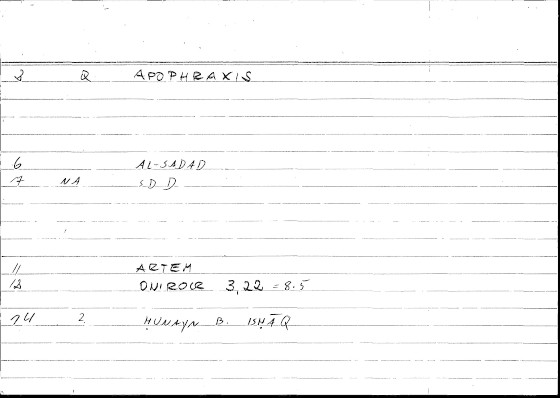 3 Q APOPHRAXIS
6 AL-SADAD
7 NA SDD
11 ARTEM
12 ONIROCR 3,22 = 8.5
14 2 ḤUNAYN B. ISḤĀQ